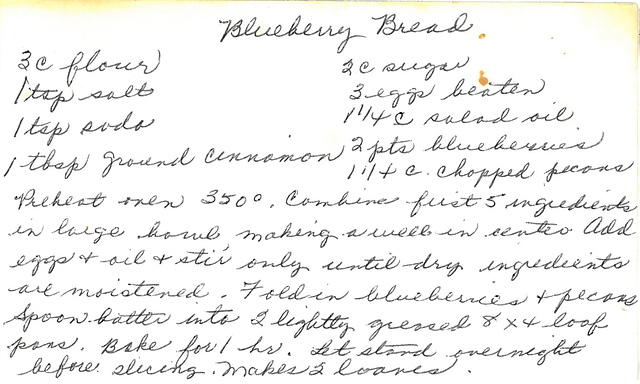 Blueberry Bread
3c flour
1 tsp salt
1 tsp soda
1 tbsp ground cinnamon
2c sugar
3 eggs beaten
1 1/4 c salad oil
2 pts blueberries
1 1/4 c. chopped pecans
Preheat oven 350°. Combine first 5 ingredients
in large bowl, making a well in center Add
eggs + oil + stir only until dry ingredients
are moistened. Fold in blueberries + pecans
Spoon batter into 2 lightly greased 8x4 loaf
pans. Bake for 1 hr. Let stand overnight
before slicing. Makes 2 loaves.